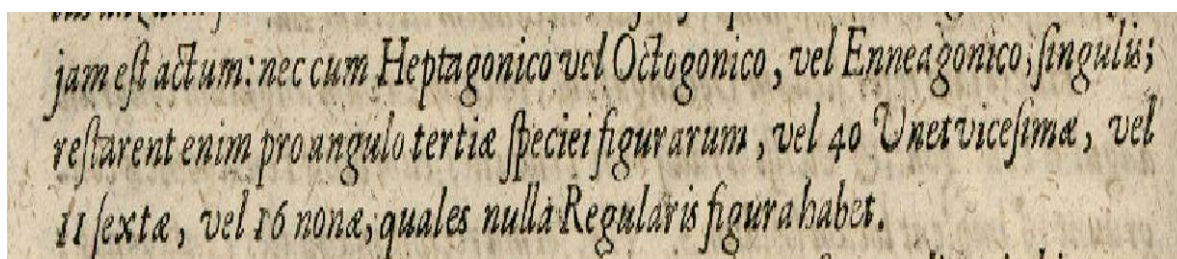 jam est actum: nec cum Heptagonico vel Octogonico, vel Enneagonico, singulis;
restarent enim pro angulo tertiæ speciei figurarum, vel 40 Unetvicesimæ, vel
11 sextæ, vel 16 nonæ; quales nulla Regularis figura habet.